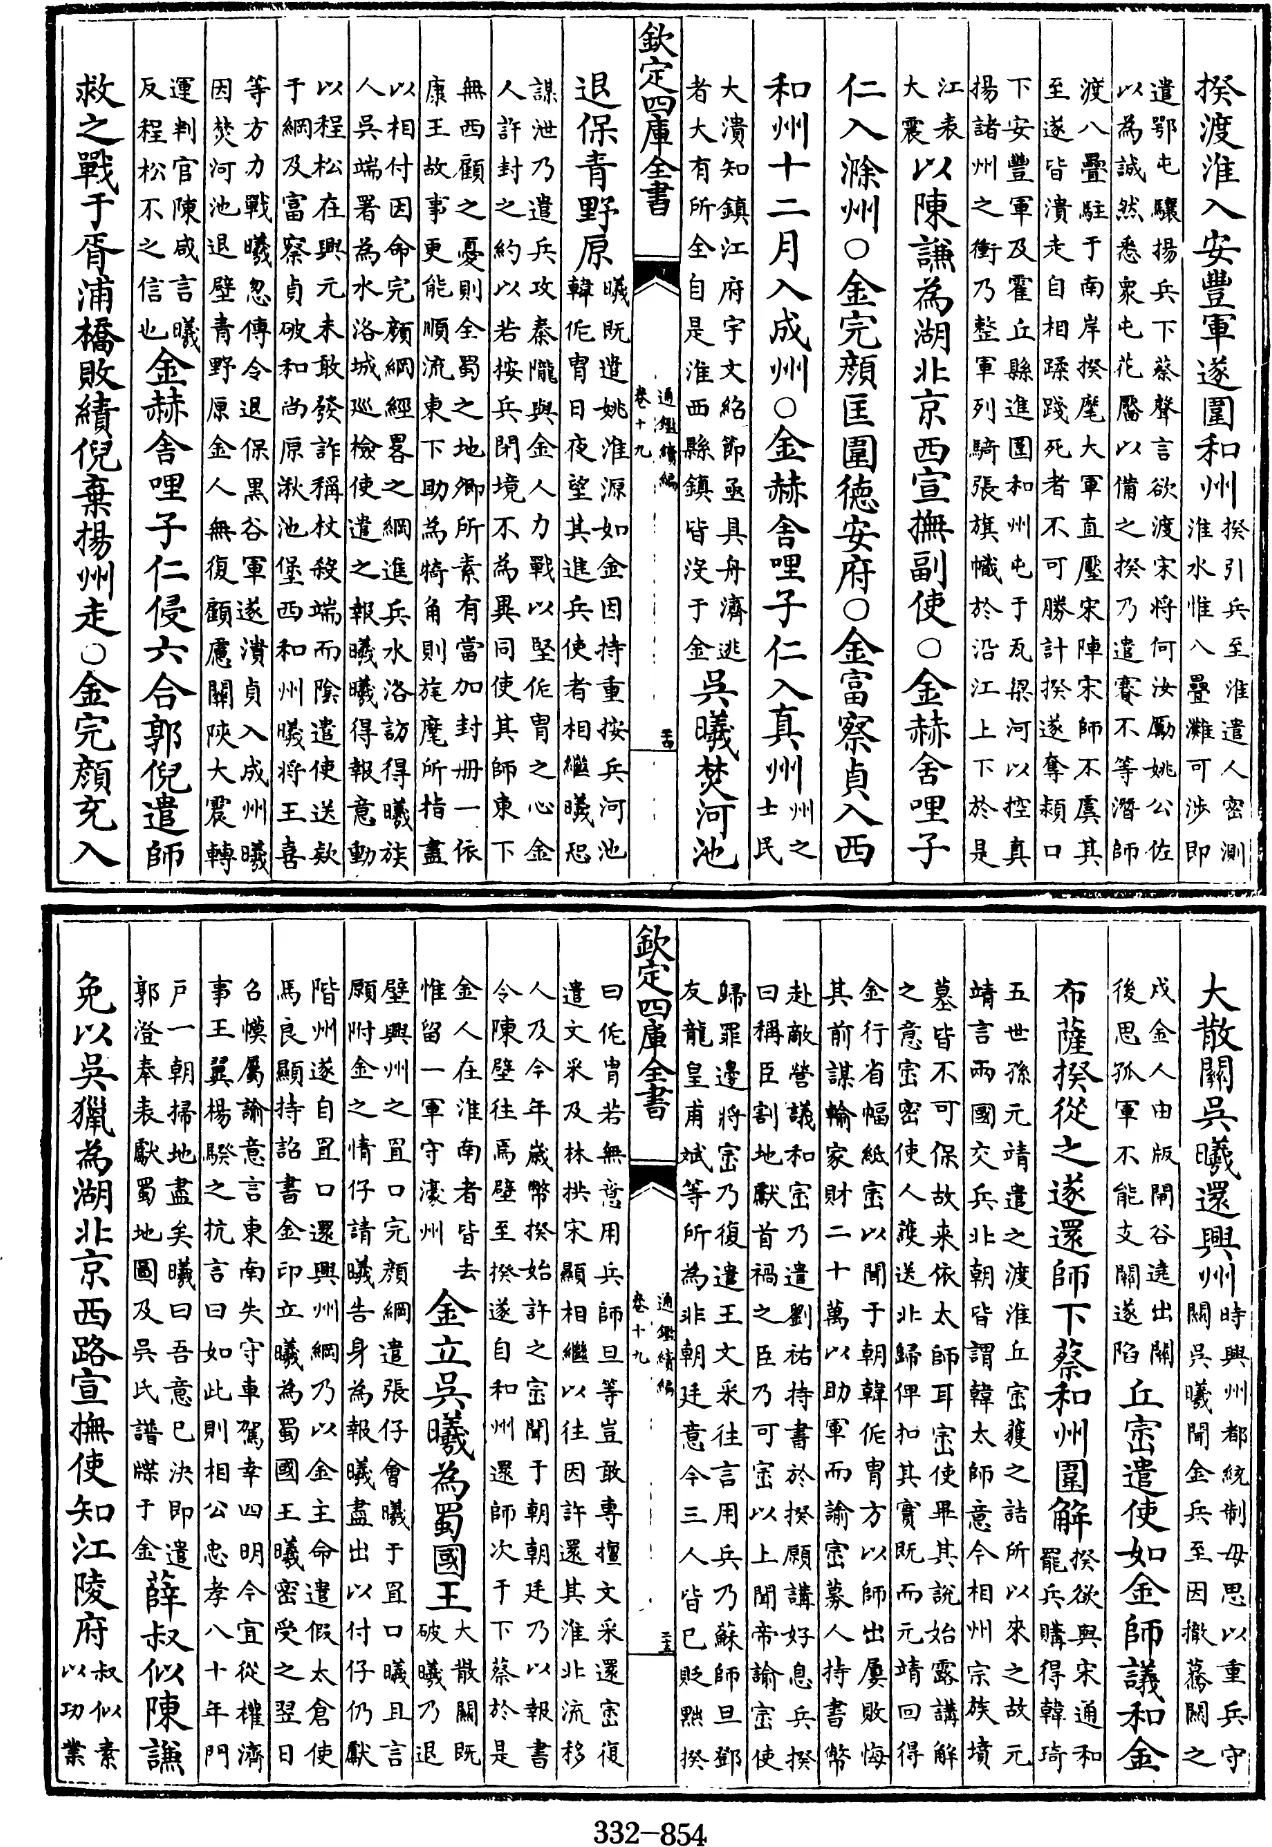 揆渡淮入安豐軍遂圍和州揆引兵至淮遣人密測淮水惟八疊灘可涉即
遣鄂屯驤揚兵下蔡聲言欲渡宋將何汝勵姚公佐以為誠然悉衆屯花靨以備之揆乃遣賽不等潛師
渡八疊駐于南岸揆麾大軍直壓宋陣宋師不虞其至遂皆潰走自相蹂踐死者不可勝計揆遂奪潁口
下安豐軍及霍丘縣進圍和州屯于瓦梁河以控真揚諸州之衝乃整軍列騎張旗幟於沿江上下於是
江表大震以陳謙為湖北京西宣撫副使○金赫舍哩子
仁入滁州○金完顔匡圍德安府○金富察貞入西
和州十二月入成州○金赫舍哩子仁入真州州之士民
大潰知鎮江府宇文紹節亟具舟濟逃者大有所全自是淮西縣鎮皆沒于金吳曦焚河池
欽定四庫全書
通鑑續編
卷十九
二十四
退保青野原曦既遣姚淮源如金因持重按兵河池韓侂胄日夜望其進兵使者相繼曦恐
謀泄乃遣兵攻秦隴與金人力戰以堅侂胄之心金人許封之約以若按兵閉境不為異同使其師東下
無西顧之憂則全蜀之地卿所素有當加封册一依康王故事更能順流東下助為犄角則旄麾所指盡
以相付因命完顔綱經畧之綱進兵水洛訪得曦族人吳端署為水洛城巡檢使遣之報曦曦得報意動
以程松在興元未敢發詐稱杖殺端而陰遣使送欵于綱及富察貞破和尚原湫池堡西和州曦將王喜
等方力戰曦忽傳令退保黑谷軍遂潰貞入成州曦因焚河池退壁青野原金人無復顧慮關陜大震轉
運判官陳咸言曦反程松不之信也金赫舍哩子仁侵六合郭倪遣師
救之戰于胥浦橋敗績倪棄揚州走○金完顔充入
大散關吳曦還興州時興州都統制毋思以重兵守關吳曦聞金兵至因撤驀關之
戍金人由版閘谷遶出關後思孤軍不能支關遂陷丘崈遣使如金師議和金
布薩揆從之遂還師下蔡和州圍解揆欲與宋通和罷兵購得韓琦
五世孫元靖遣之渡淮丘崈獲之詰所以來之故元靖言兩國交兵北朝皆謂韓太師意今相州宗族墳
墓皆不可保故来依太師耳崈使畢其說始露講解之意崈密使人䕶送北歸俾扣其實既而元靖回得
金行省幅紙崈以聞于朝韓侂胄方以師出屢敗悔其前謀輸家財二十萬以助軍而諭崈募人持書幣
赴敵營議和崈乃遣劉祐持書於揆願講好息兵揆曰稱臣割地獻首禍之臣乃可崈以上聞帝諭崈使
歸罪邊將崈乃復遣王文采往言用兵乃蘇師旦鄧友龍皇甫斌等所為非朝廷意今三人皆已貶黜揆
欽定四庫全書
通鑑續編
卷十九
二十五
曰侂胄若無意用兵師旦等豈敢專擅文采還崈復遣文采及林拱宋顯相繼以往因許還其淮北流移
人及今年歲幣揆始許之崈聞于朝朝廷乃以報書令陳壁往焉壁至揆遂自和州還師次于下蔡於是
金人在淮南者皆去惟留一軍守濠州金立吳曦為蜀國王大散關既破曦乃退
壁興州之罝口完顔綱遣張仔會曦于罝口曦且言願附金之情仔請曦告身為報曦盡出以付仔仍獻
階州遂自罝口還興州綱乃以金主命遣假太倉使馬良顯持詔書金印立曦為蜀國王曦密受之翌日
召幙屬諭意言東南失守車駕幸四明今宜從權濟事王翼楊騤之抗言曰如此則相公忠孝八十年門
戸一朝掃地盡矣曦曰吾意已決即遣郭澄奉表獻蜀地圖及吳氏譜牒于金薛叔似陳謙
免以吳獵為湖北京西路宣撫使知江陵府叔似素以功業
332-854